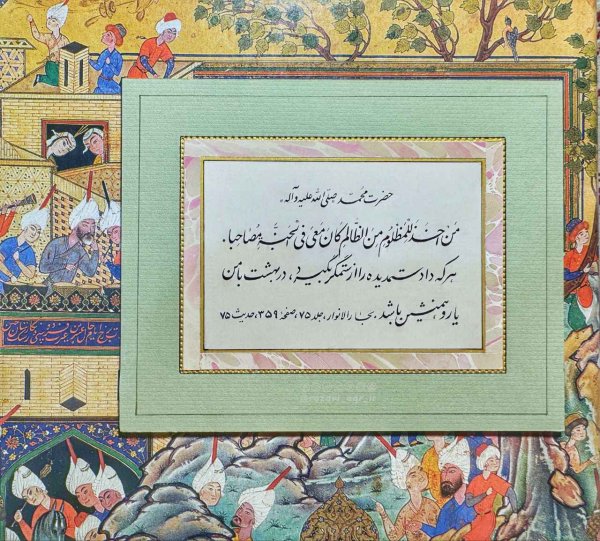 حضرت محمّد صلّی الله علیه و آله:
مَن أخَذَ لِلمَظلومِ مِنَ الظالِمِ کانَ مَعی فی الجَنَّةِ مُصاحِبا.
هر که داد ستمدیده را از ستمگر بگیرد، در بهشت با من
یار و همنشین باشد. بحارالانوار، جلد ۷۵، صفحهٔ ۳۵۹، حدیث ۷۵